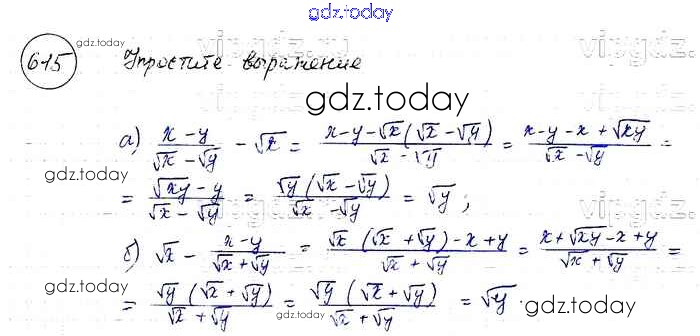 gdz.today
615 Упростите выражение
gdz.today
gdz.today
а) (x-y)/(√x-√y) - √x = (x-y-√x(√x-√y))/(√x-√y) = (x-y-x+√xy)/(√x-√y) =
gdz.today
= (√xy-y)/(√x-√y) = (√y(√x-√y))/(√x-√y) = √y;
б) √x - (x-y)/(√x+√y) = (√x(√x+√y)-x+y)/(√x+√y) = (x+√xy-x+y)/(√x+√y) =
= (√y(√x+√y))/(√x+√y) = (√y(√x+√y))/(√x+√y) = √y.
gdz.today
gdz.today